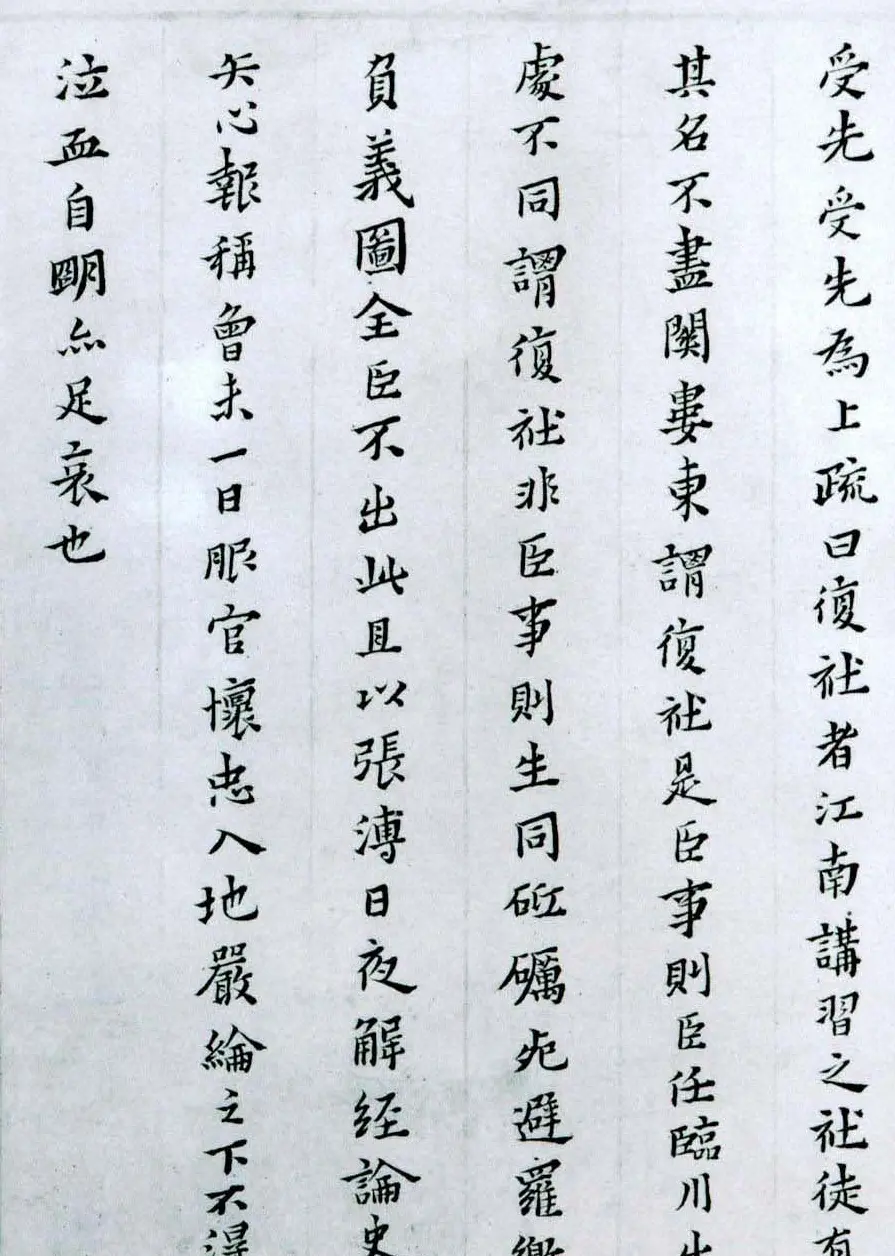 受先受先為上疏曰復社者江南講習之社徒有
其名不盡闋婁東謂復社是臣事則臣任臨川出
處不同謂復社非臣事則生同砥礪死避羅繳
負義圖全臣不出此且以張溥日夜解經論史
矢心報稱曾未一日服官懷忠入地嚴綸之下不得
泣血自明亦足哀也